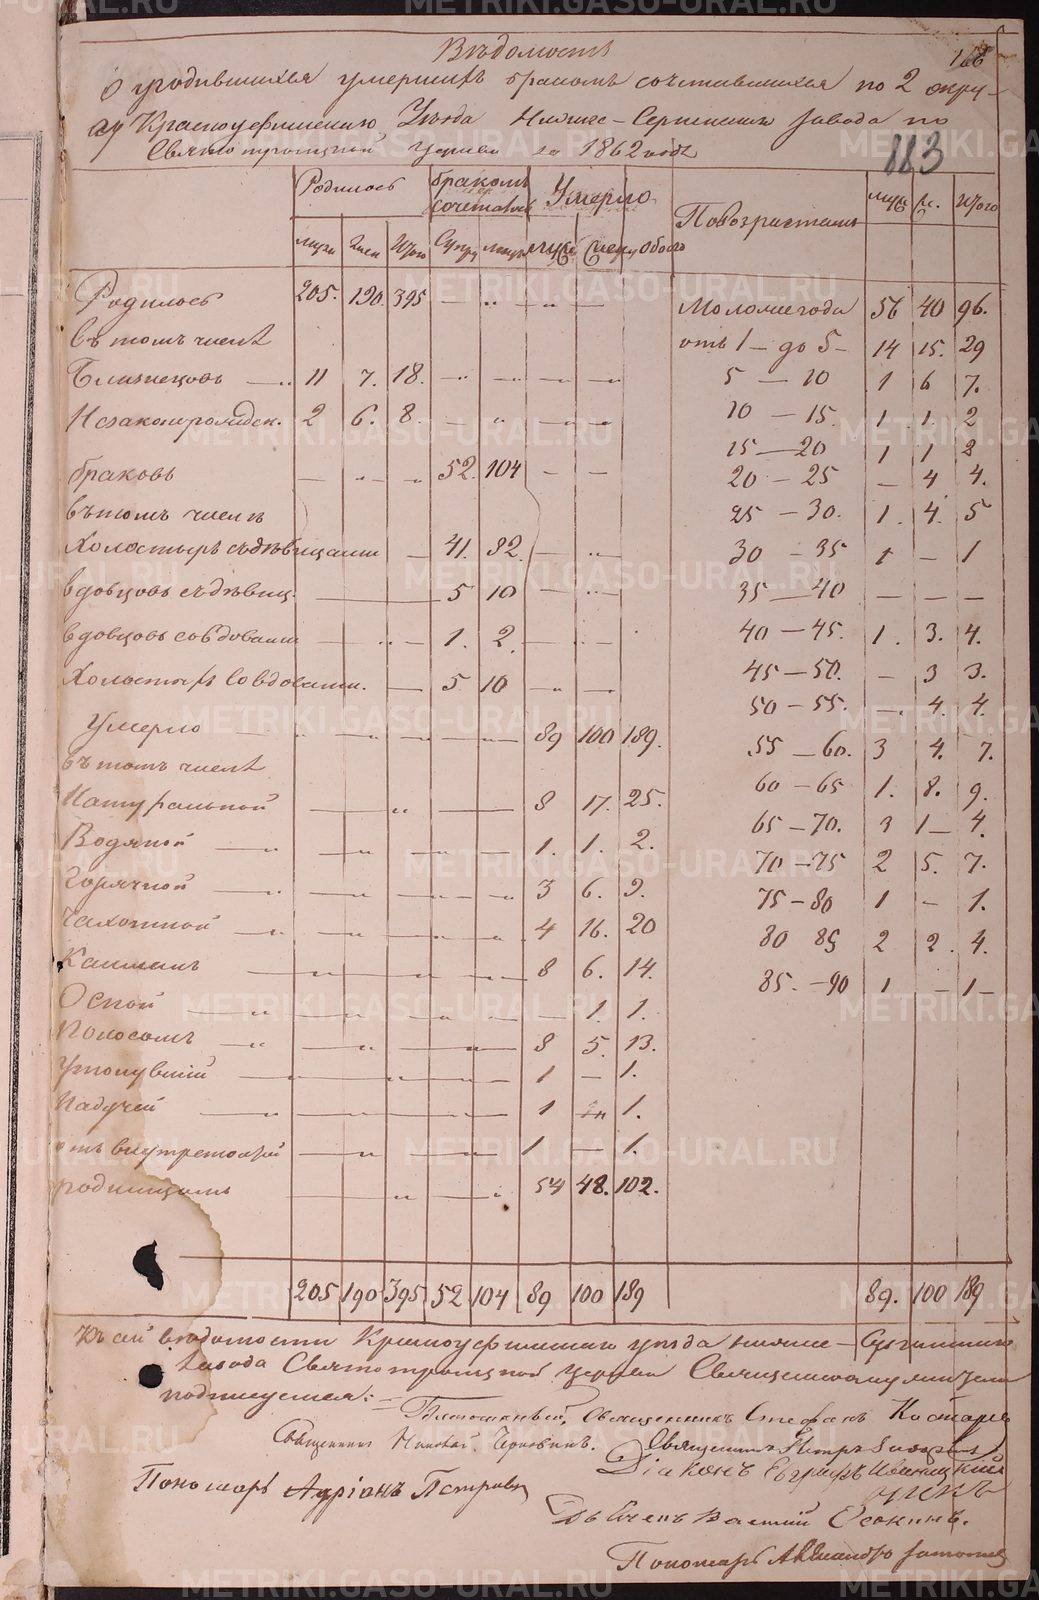 Вѣдомость
166
О родившихся умершихъ бракомъ сочетавшихся по 2 окру-
гу Красноуфимскаго Уѣзда Нижне-Сергинскаго завода по
Свято троицкой церкви за 1862 годъ
113
Родилось бракомъ сочетавш. Умерло По возрастамъ муж ж. Итого
муж жен Итого Супр лицъ муж жен обоего
Родилось 205. 190. 395 — „ „ — Моложе года 56 40 96.
въ томъ числѣ отъ 1 — до 5 — 14 15. 29
Близнецовъ — 11 7. 18. — — — — 5 — 10 1 6 7.
Незаконорожден. 2 6. 8. — „ — — 10 — 15. 1 1. 2
15 — 20 1 1 2
браковъ — „ „ 52. 104 — — 20 — 25 — 4 4.
въ томъ числѣ 25 — 30. 1. 4. 5
Холостыхъ съ дѣвицами — 41. 82. — „ 30 — 35 1 — 1
вдовцовъ съ дѣвиц. — 5 10 — „ 35 — 40 — — —
вдовцовъ со вдовами — „ — 1. 2. — „ 40 — 45. 1. 3. 4.
Холостыхъ со вдовами. — 5 10 — „ — 45 — 50. — 3 3.
50 — 55. — 4. 4.
Умерло — „ — „ — 89 100 189. 55 — 60. 3 4. 7.
въ томъ числѣ
Натуральной — „ — 8 17. 25. 60 — 65 1. 8. 9.
Водяной — „ — „ — 1. 1. 2. 65 — 70. 3 1 — 4.
70 — 75 2 5. 7.
Горячкой — „ — „ — 3 6. 9. 75 — 80 1 — 1.
Чахоткой — „ — „ — 4 16. 20 80 85 2 2. 4.
Кашлемъ — „ — „ — 8 6. 14. 85. — 90 1 — 1 —
Оспой — „ — „ — — 1. 1.
Поносомъ — „ — „ — 8 5. 13.
Утонувшій — „ — „ — 1 — 1.
Падучей — „ — „ — 1 „ 1.
отъ внутренной — „ — „ — 1 — 1.
родимцомъ „ — „ 54 48. 102.
205 190 395 52 104 89 100 189 89. 100 189
Къ сей вѣдомости Красноуфимскаго уѣзда нижне — Сергинскаго
завода Свято троицкой церкви Священноцерковнослужители
подписуемся: =
Священникъ Стефанъ
Священникъ Николай. Священникъ Петръ
Діаконъ Евграфъ
Пономарь Адріанъ Петровъ
Василій Осокинъ.
Пономарь Александръ